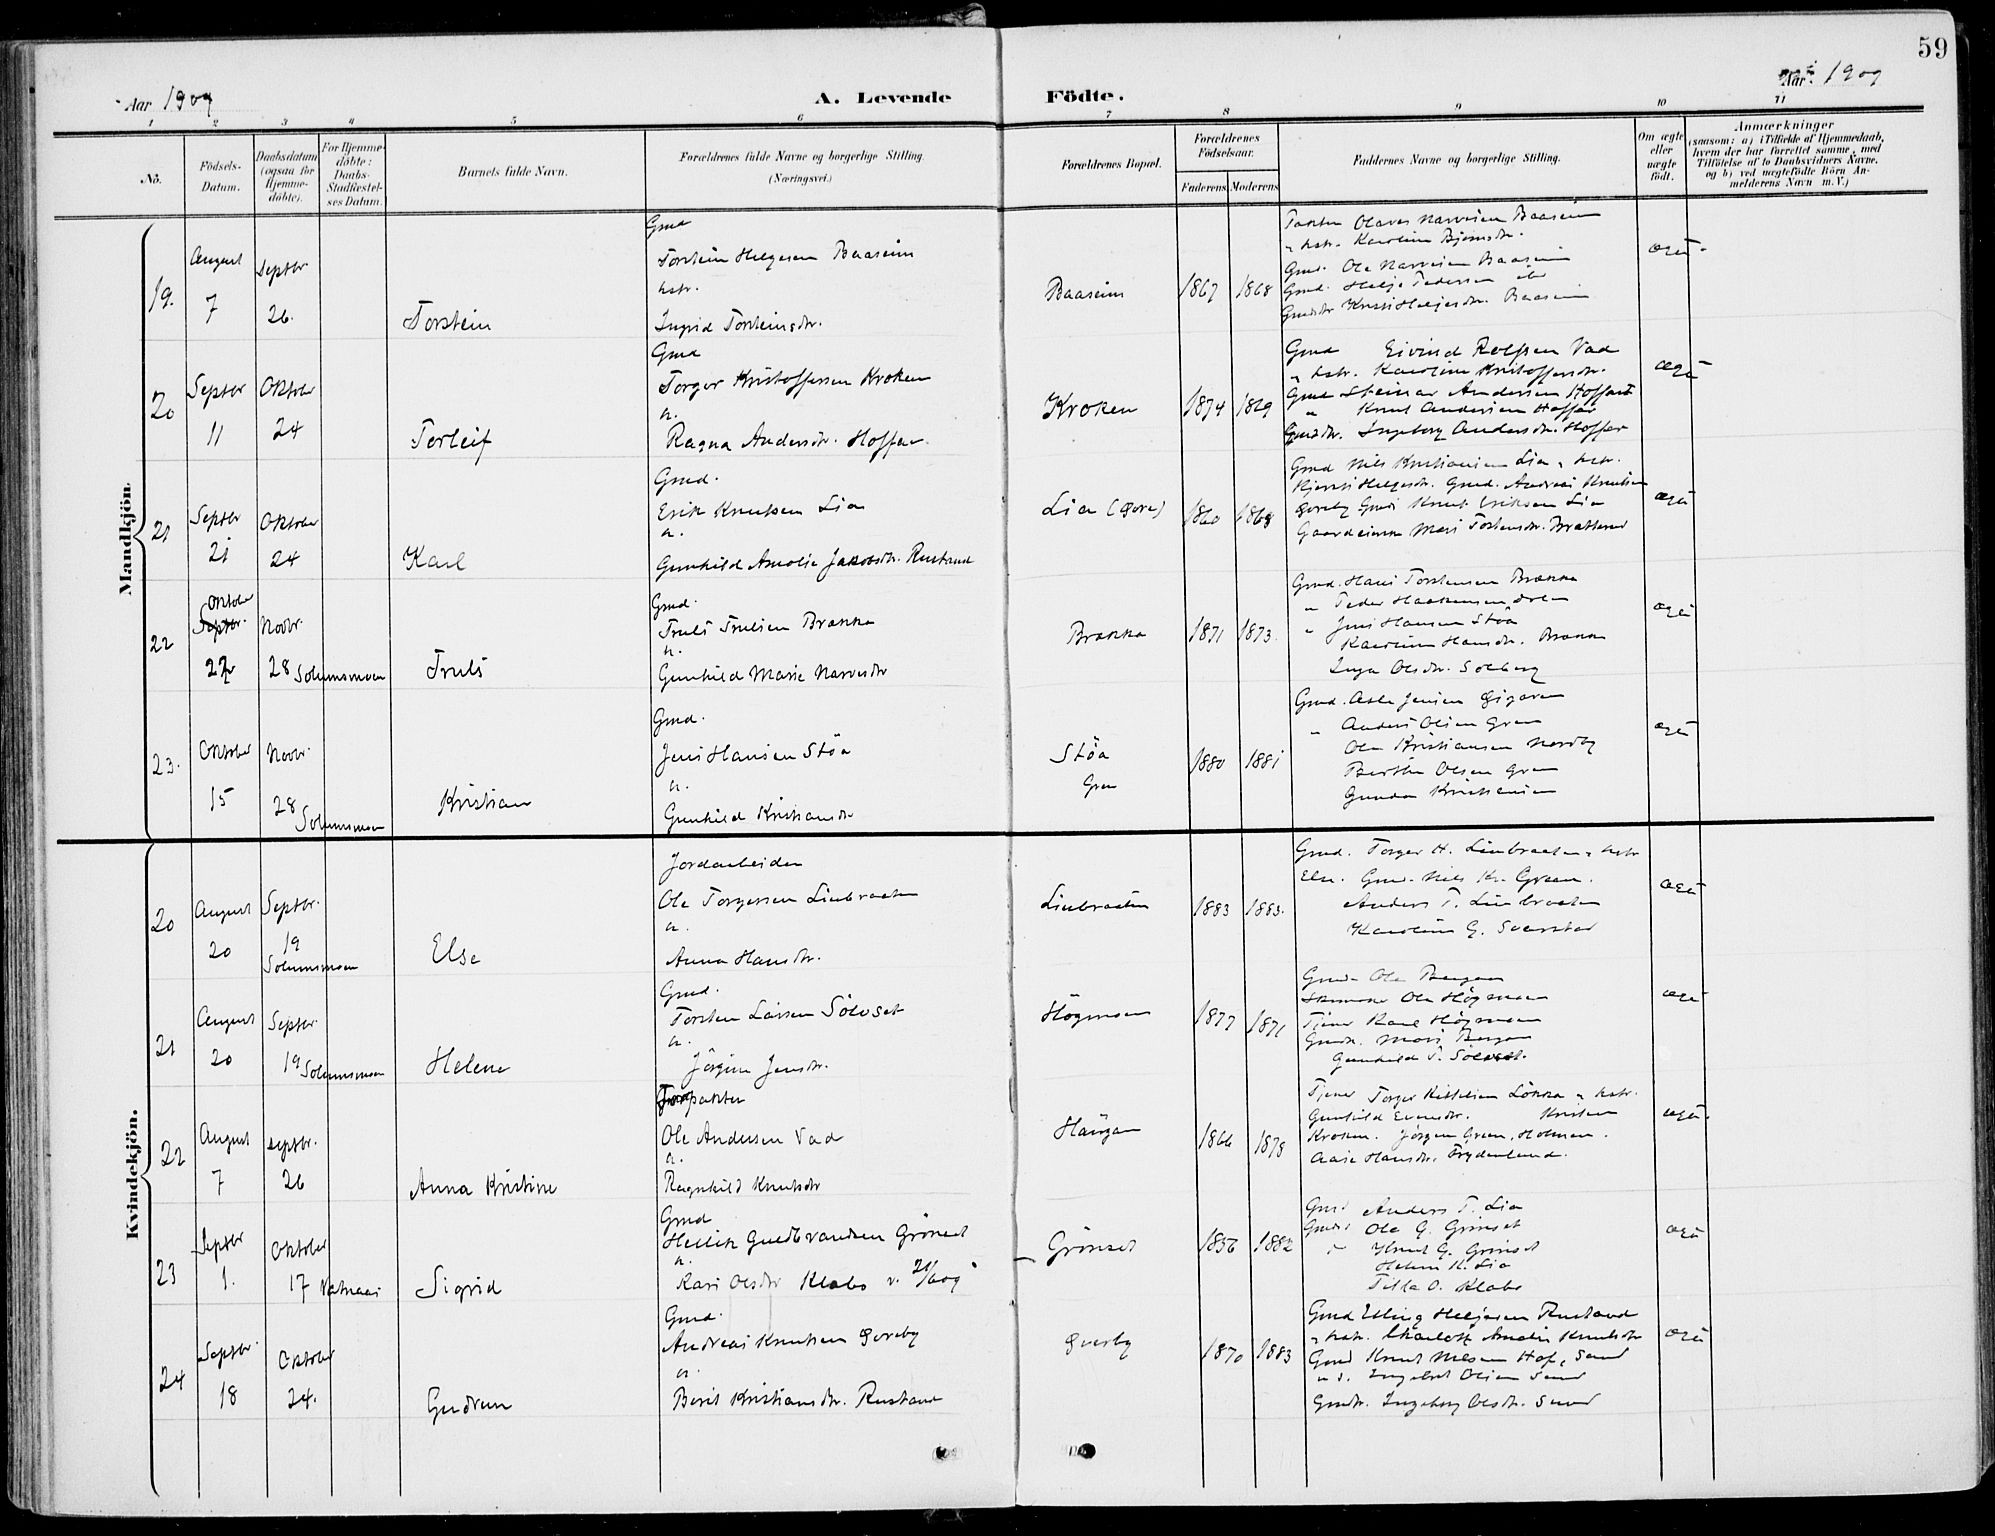 59
Aar 1909
A. Levende Födte.
Aar 1909
1 2 3 4 5 6 7 8 9 10 11
No.
Födsels-Datum.
Daabsdatum (ogsaa for Hjemme-döbte).
For Hjemme-döbte: Daabs-Stadfæstel-ses Datum.
Barnets fulde Navn.
Forældrenes fulde Navne og borgerlige Stilling.
(Næringsvei.)
Forældrenes Bopæl.
Forældrenes Födselsaar.
Faderens Moderens
Faddernes Navne og borgerlige Stilling.
Om ægte eller uægte födt.
Anmærkninger
(saasom: a) i Tilfælde af Hjemmedaab,
hvem der har forrettet samme, med
Tilföielse af to Daabsvidners Navne,
og b) ved uægtefödte Börn An-
melderens Navn m. V.)
Mandkjön.
19. August 7 Septbr 26. Torstein
Gmd
Torstein Helgesen Baaseim
hstr.
Ingrid Torsteinsdtr.
Baaseim 1867 1868
Torsten Olaves Narvesen Baaseim
" hstr. Karoline Bjørnsdtr.
Gmd. Ole Narvesen Baaseim
Gmd. Helge Pedersen
Gmdsdtr Kristi Helgesdtr. Baaseim
ægte
20 Septbr 11 Oktober 24 Torleif
Gmd
Torger Kristoffersen Kroken
h.
Ragna Andersdtr. Hoffar
Kroken 1874 1869
Gmd Eivind Rolfsen Vad
" hstr. Karoline Kristoffersdtr.
Gmd Steinar Andersen Hoffart
" Knut Andersen Hoffar
Gmdsdtr. Ingeborg Andersdtr. Hoffar
ægte
21 Septbr 21 Oktober 24 Karl
Gmd.
Erik Knutsen Lia
h.
Gunhild Amalie Jakobsdtr. Rustand
Lia (øvre) 1860 1868
Gmd Nils Kristiansen Lia, hstr.
Kjersti Helgesdtr. Gmd. Andreas Knutsen
Gvereby Gmds Knut Eriksen Lia
Mari Torstensdtr. Bratterud
ægte
22 Oktober Septbr. 22 Novbr. 28 Solumsmoen Truls
Gmd.
Truls Trulsen Brække
h.
Gunhild Marie Narvesdtr
Brække 1871 1873.
Gmd. Hans Torstensen Brække
" Peder Haakensen
" Jens Hansen Støa
Karoline Hansdtr. Brække
Inga Olsdtr. Solberg
ægte
23. Oktober 15 Novbr. 28 Solumsmoen Kristian
Gmd.
Jens Hansen Støa
h.
Gunhild Kristiansdtr
Støa
Gren
1880 1881
Gmd. Asle Jensen
" Anders Olsen Gren
Ole Kristiansen Nordby
Berthe Olsen Gren
Gunda Kristiansen
ægte
Kvindekjön.
20 August 20 Septbr. 19 Solumsmoen Else
Jordarbeider
Ole Torgersen Liebraaten
h.
Anna Hansdtr.
Liebraaten 1883 1883.
Gmd. Torger H. Liebraaten, hstr
Else. Gmd. Nils Kr. Green.
Anders T. Liebraaten
Karoline G. Svarstad
ægte
21 August 20 Septbr. 19 Solumsmoen Helene
Gmd.
Torsten Larsen Sølvset
h.
Jörgine Jensdtr.
Høgmoen 1877 1871
Gmd. Ole Bergan
Skomaker Ole Høgmoen
Tjener Karl Høgmoen
Gmdk. Mari Bergan
Gunhild T. Sølvset.
ægte
22 August 7 Septbr. 26 Anna Kristine
Forpakter
Ole Andersen Vad
h.
Ragnhild Knutsdtr
Haugan 1866 1878
Tjener Torger Kittilsen Løkka, hstr.
Gunhild Evensdtr. Kristen
Kroken. Jörgen Green, Holmen.
Aase Hansdtr. Frydenlund.
ægte
23 Septbr 1. Oktober 17 Vatnaas Sigrid
Gmd
Hellik Guldbrandsen Grönset
h.
Kari Olsdtr Klabo
Grönset 1856 1882
Gmd Anders T. Lia
Gmds Ole G. Grønset
" Knut G. Grønset
Helene K. Lia
Tilla O. Klabo
ægte
24 Septbr. 18 Oktober 24. Gudrun
Gmd.
Andreas Knutsen Gvereby
h.
Berit Kristiansdtr. Rustand
Gvereby 1870 1883
Gmd Elling Helgesen Rustand
" hstr. Charlotte Amalie Knutsdtr
Gmd Knut Nilsen Hof, Sand
Ingebret Olsen Sand
Gmdtr. Ingeborg Olsdtr. Sand
ægte